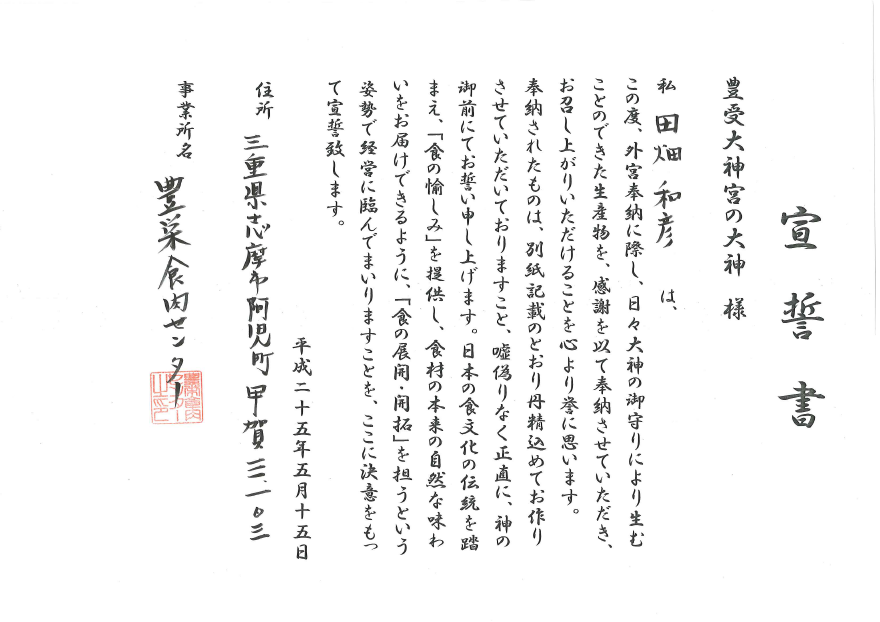 宣誓書
豊受大神宮の大神 様
私 田畑和彦 は、
この度、外宮奉納に際し、日々大神の御守りにより生む
ことのできた生産物を、感謝を以て奉納させていただき、
お召し上がりいただけることを心より誉に思います。
奉納されたものは、別紙記載のとおり丹精込めてお作り
させていただいておりますこと、嘘偽りなく正直に、神の
御前にてお誓い申し上げます。日本の食文化の伝統を踏
まえ、「食の愉しみ」を提供し、食材の本来の自然な味わ
いをお届けできるように、「食の展開・開拓」を担うという
姿勢で経営に臨んでまいりますことを、ここに決意をもっ
て宣誓致します。
平成二十五年五月十五日
住所 三重県志摩市阿児町甲賀三二一〇三
事業所名 豊栄食肉センター